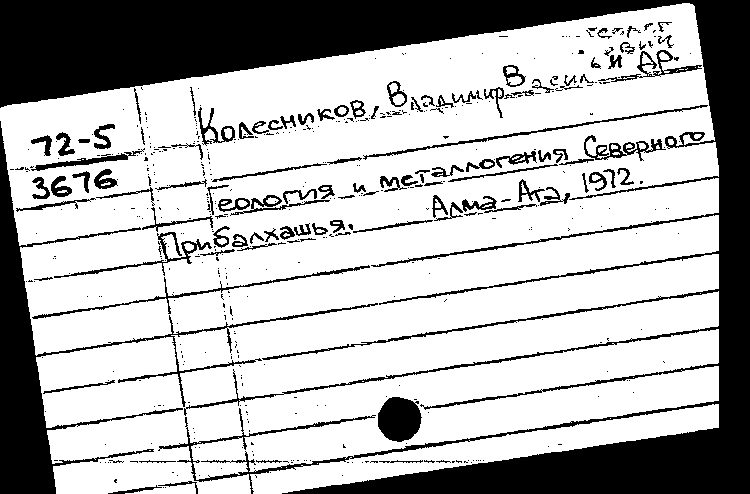 72-5
3676
Колесников, Владимир Васил и др.
Геология и металлогения Северного
Прибалхашья. Алма-Ата, 1972.